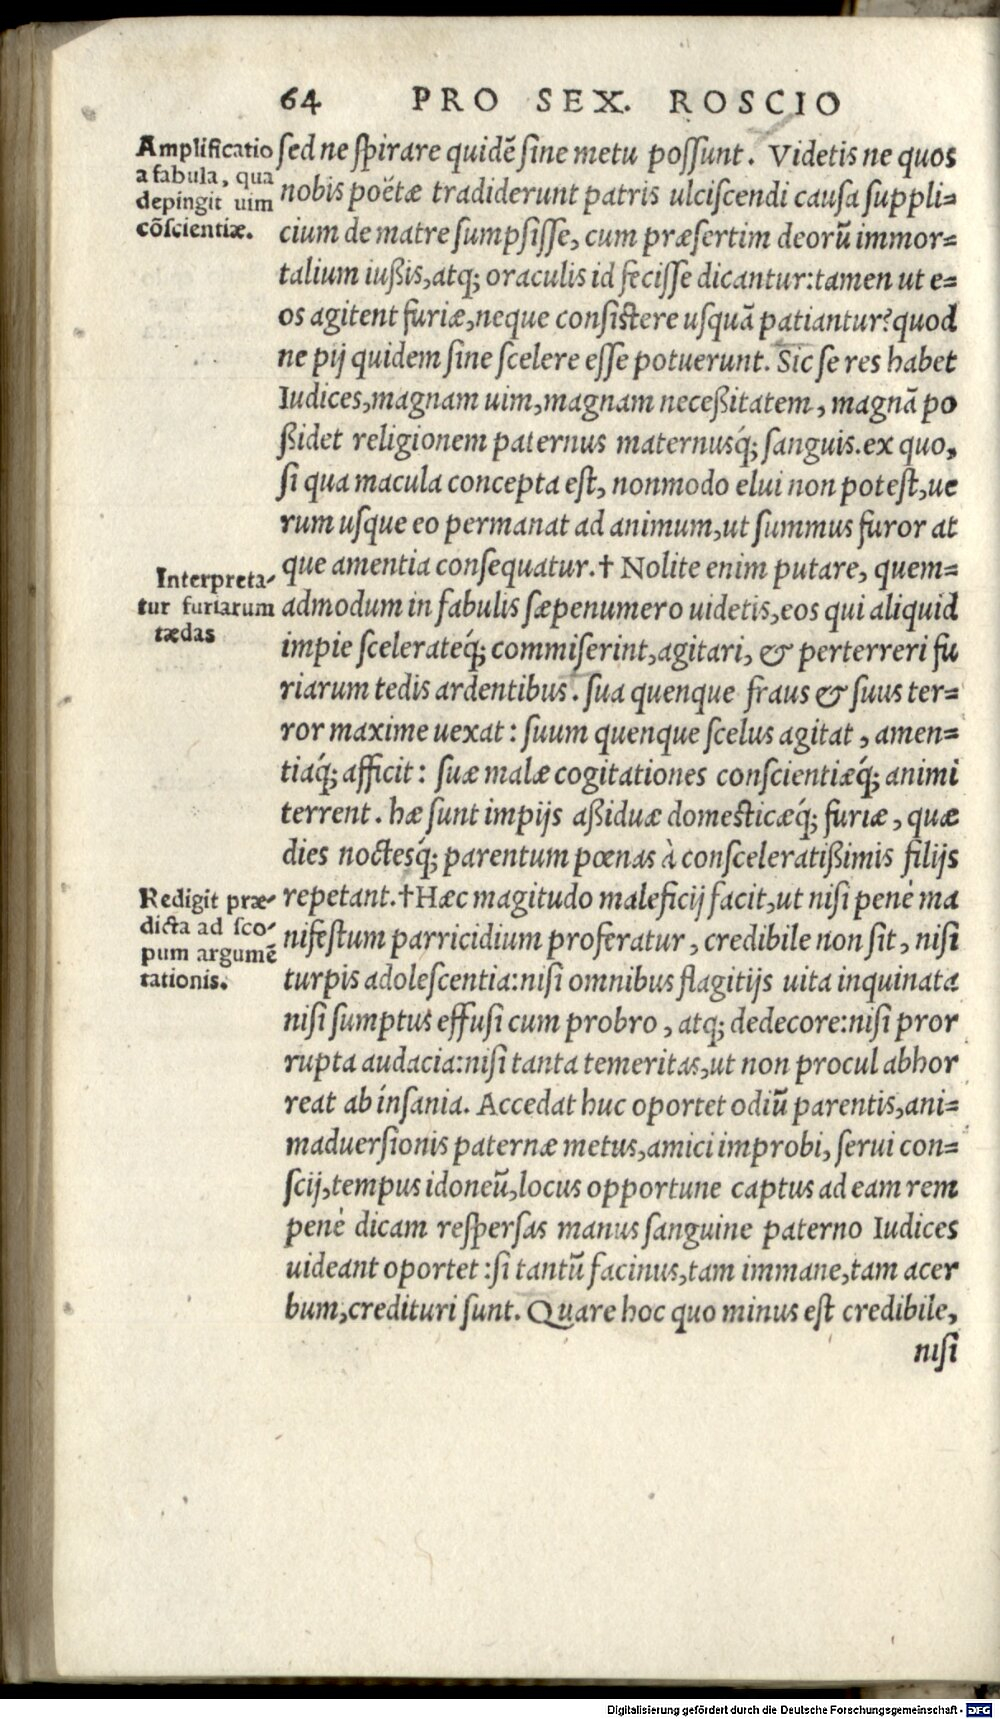 64 PRO SEX. ROSCIO
Amplificatio
a fabula, qua
depingit uim
cōscientiæ.
sed ne spirare quidē sine metu possunt. Videtis ne quos
nobis poëtæ tradiderunt patris ulciscendi causa suppli=
cium de matre sumpsisse, cum præsertim deorū immor=
talium iußis, atq; oraculis id fecisse dicantur: tamen ut e=
os agitent furiæ, neque consistere usquā patiantur? quod
ne pij quidem sine scelere esse potuerunt. Sic se res habet
Iudices, magnam uim, magnam neceßitatem, magnā po
ßidet religionem paternus maternusq́; sanguis. ex quo,
si qua macula concepta est, nonmodo elui non potest, ue
rum usque eo permanat ad animum, ut summus furor at
que amentia consequatur. † Nolite enim putare, quem=
Interpreta-
tur furiarum
tædas
admodum in fabulis sæpenumero uidetis, eos qui aliquid
impie scelerateq́; commiserint, agitari, & perterreri fu
riarum tedis ardentibus. sua quenque fraus & suus ter=
ror maxime uexat: suum quenque scelus agitat, amen=
tiaq́; afficit: suæ malæ cogitationes conscientiæq́; animi
terrent. hæ sunt impijs aßiduæ domesticæq́; furiæ, quæ
dies noctesq́; parentum pœnas à consceleratißimis filijs
Redigit præ-
dicta ad sco-
pum argumē
tationis.
repetant. † Hæc magitudo maleficij facit, ut nisi penè ma
nifestum parricidium proferatur, credibile non sit, nisi
turpis adolescentia: nisi omnibus flagitijs uita inquinata
nisi sumptus effusi cum probro, atq; dedecore: nisi pror
rupta audacia: nisi tanta temeritas, ut non procul abhor
reat ab insania. Accedat huc oportet odiū parentis, ani=
maduersionis paternæ metus, amici improbi, serui con=
scij, tempus idoneū, locus opportune captus ad eam rem
penè dicam respersas manus sanguine paterno Iudices
uideant oportet: si tantū facinus, tam immane, tam acer
bum, credituri sunt. Quare hoc quo minus est credibile,
nisi
Digitalisierung gefördert durch die Deutsche Forschungsgemeinschaft - DFG